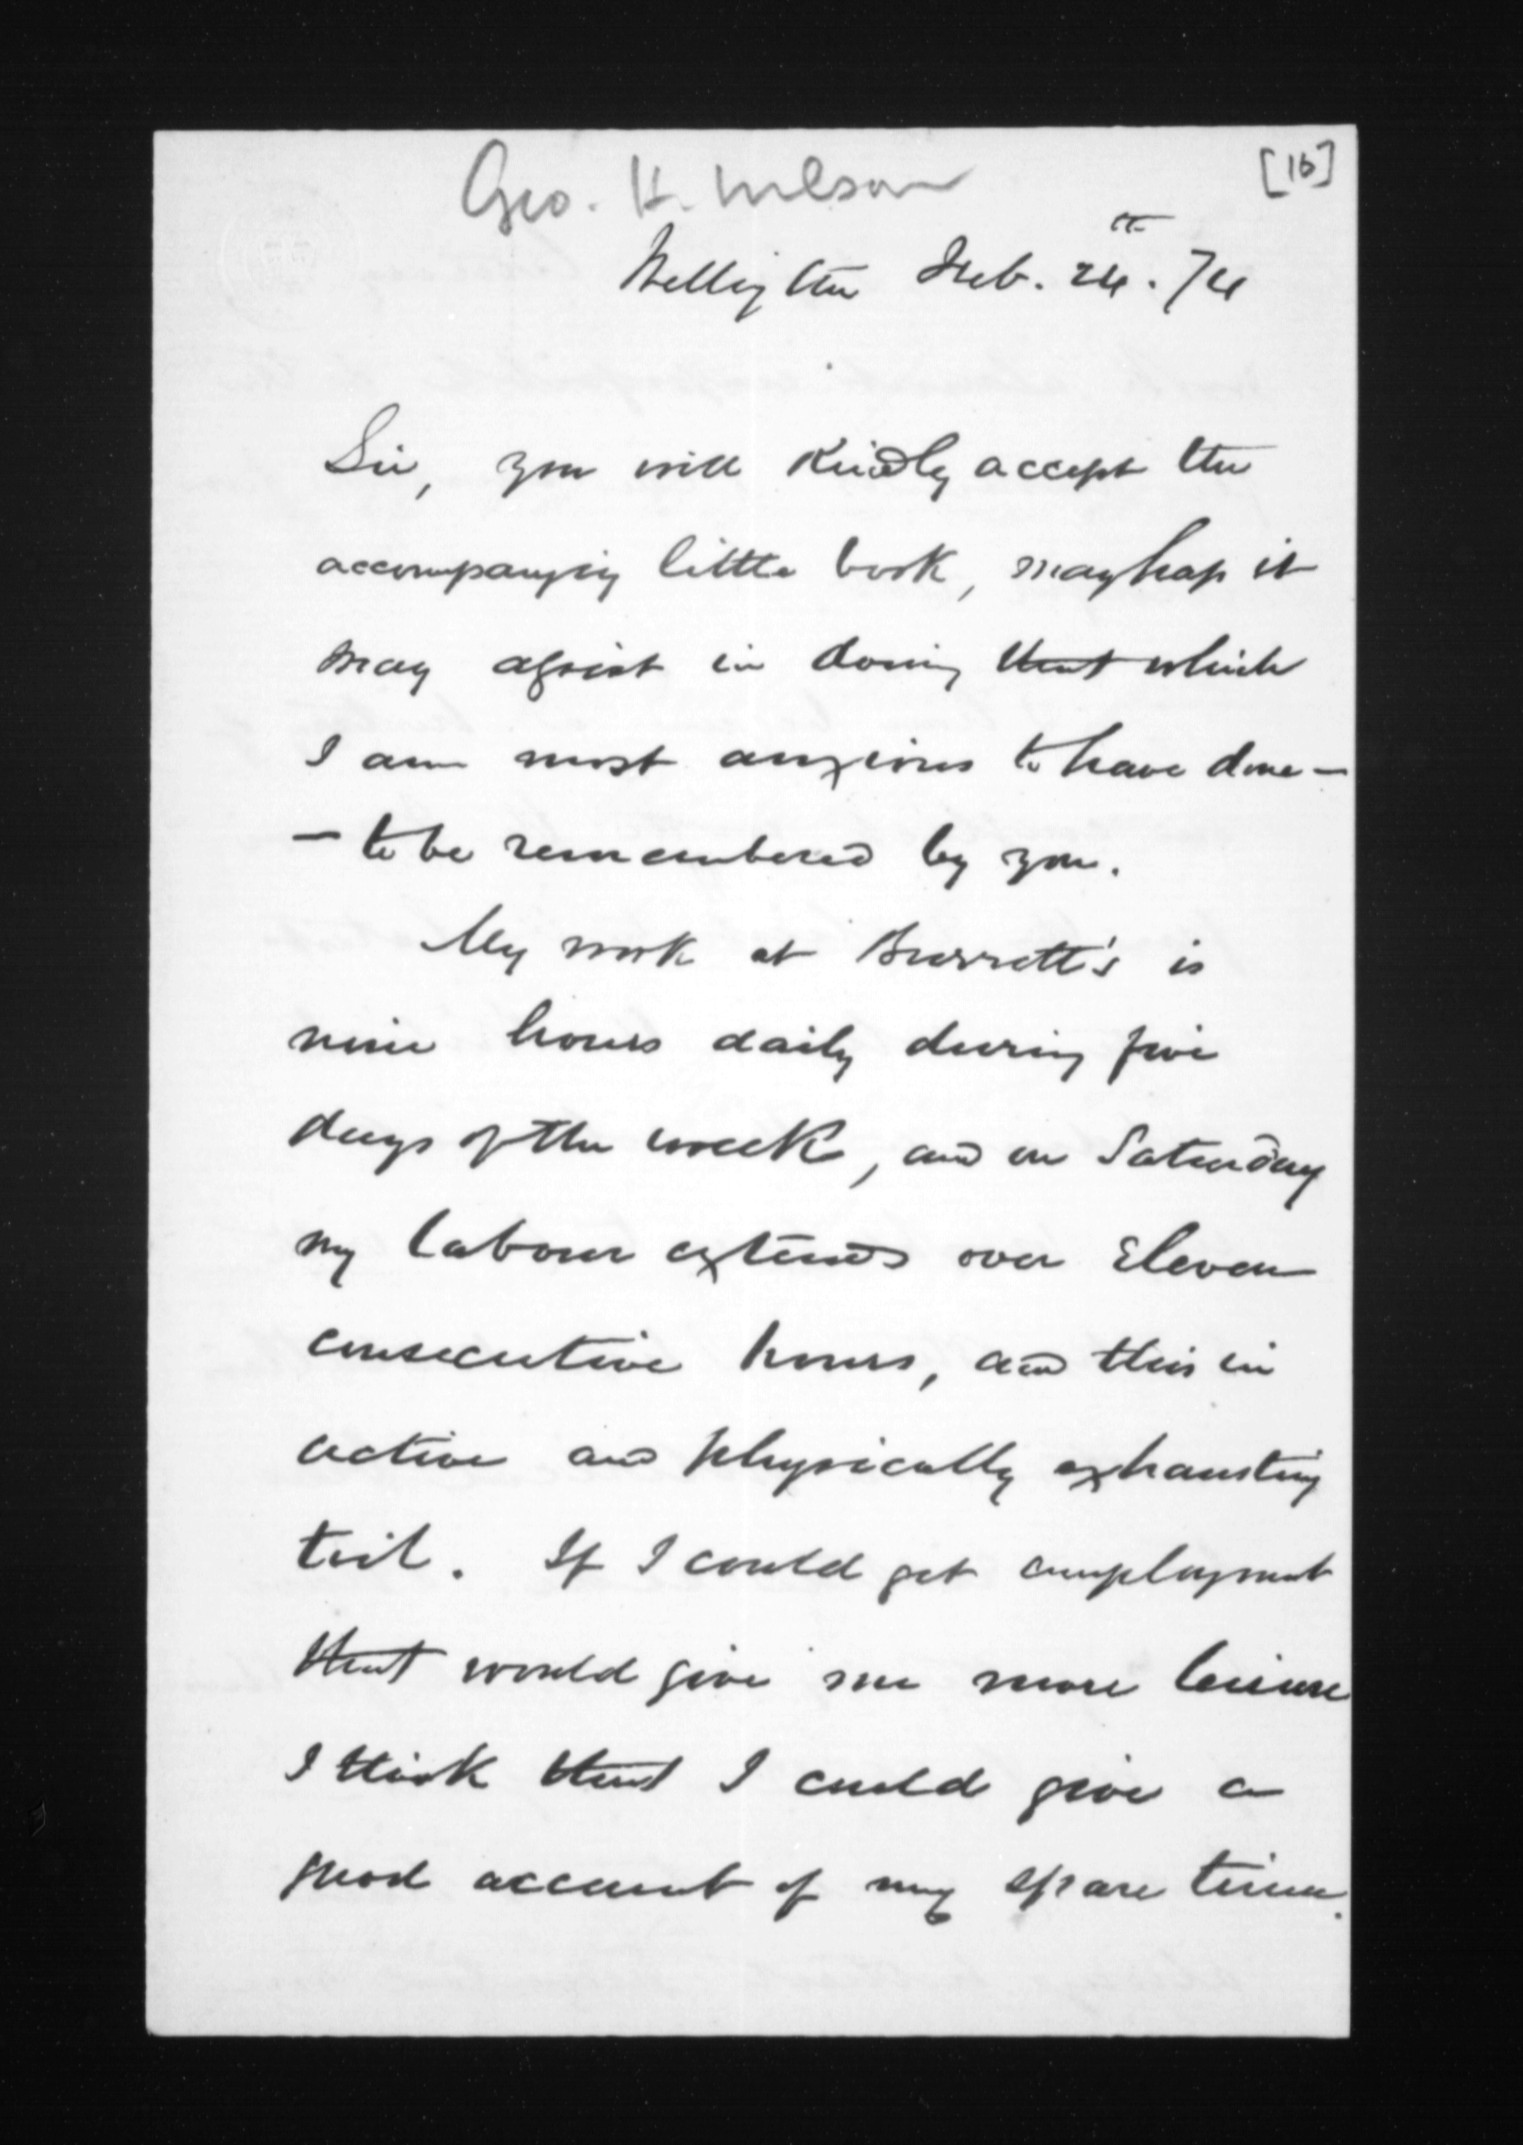 [16]
Geo. H. Wilson
Wellington Feb. 24th. 74
Sir, you will Kindly accept the
accompanying little book, mayhap it
may assist in doing that which
I am most anxious to have done —
— to be remembered by you.
My work at Burrett's is
nine hours daily during five
days of the week, and on Saturday
my labour extends over Eleven
consecutive hours, and this in
active and physically exhausting
toil. If I could get employment
that would give me more leisure
I think that I could give a
good account of my spare time.